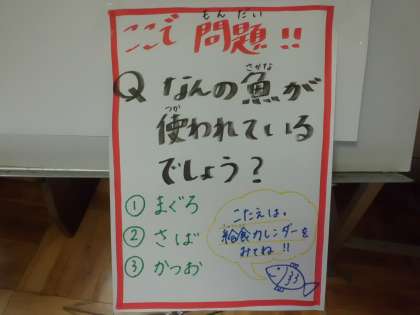 ここで 問題!!
もんだい
Q なんの魚が
さかな
使われている
つか
でしょう?
① まぐろ
② さば
③ かつお
こたえは、
給食カレンダーを
みてね!!